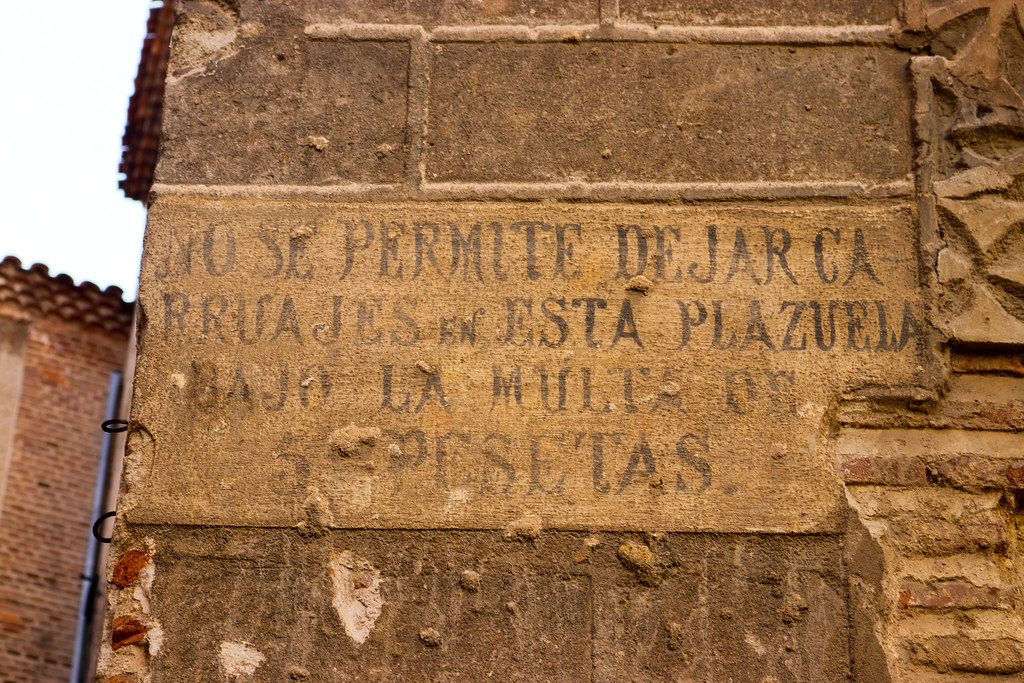 NO SE PERMITE DEJAR CA-
RRUAJES EN ESTA PLAZUELA
BAJO LA MULTA DE
5 PESETAS.